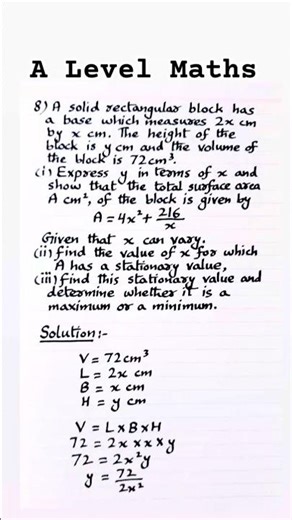 A Level Maths
8) A solid rectangular block has
a base which measures 2x cm
by x cm. The height of the
block is y cm and the volume of
the block is 72cm³.
(i) Express y in terms of x and
show that the total surface area
A cm², of the block is given by
A = 4x² + 216/x
Given that x can vary.
(ii) find the value of x for which
A has a stationary value,
(iii) find this stationary value and
determine whether it is a
maximum or a minimum.
Solution:-
V = 72cm³
L = 2x cm
B = x cm
H = y cm
V = L x B x H
72 = 2x x x x y
72 = 2x²y
y = 72/2x²